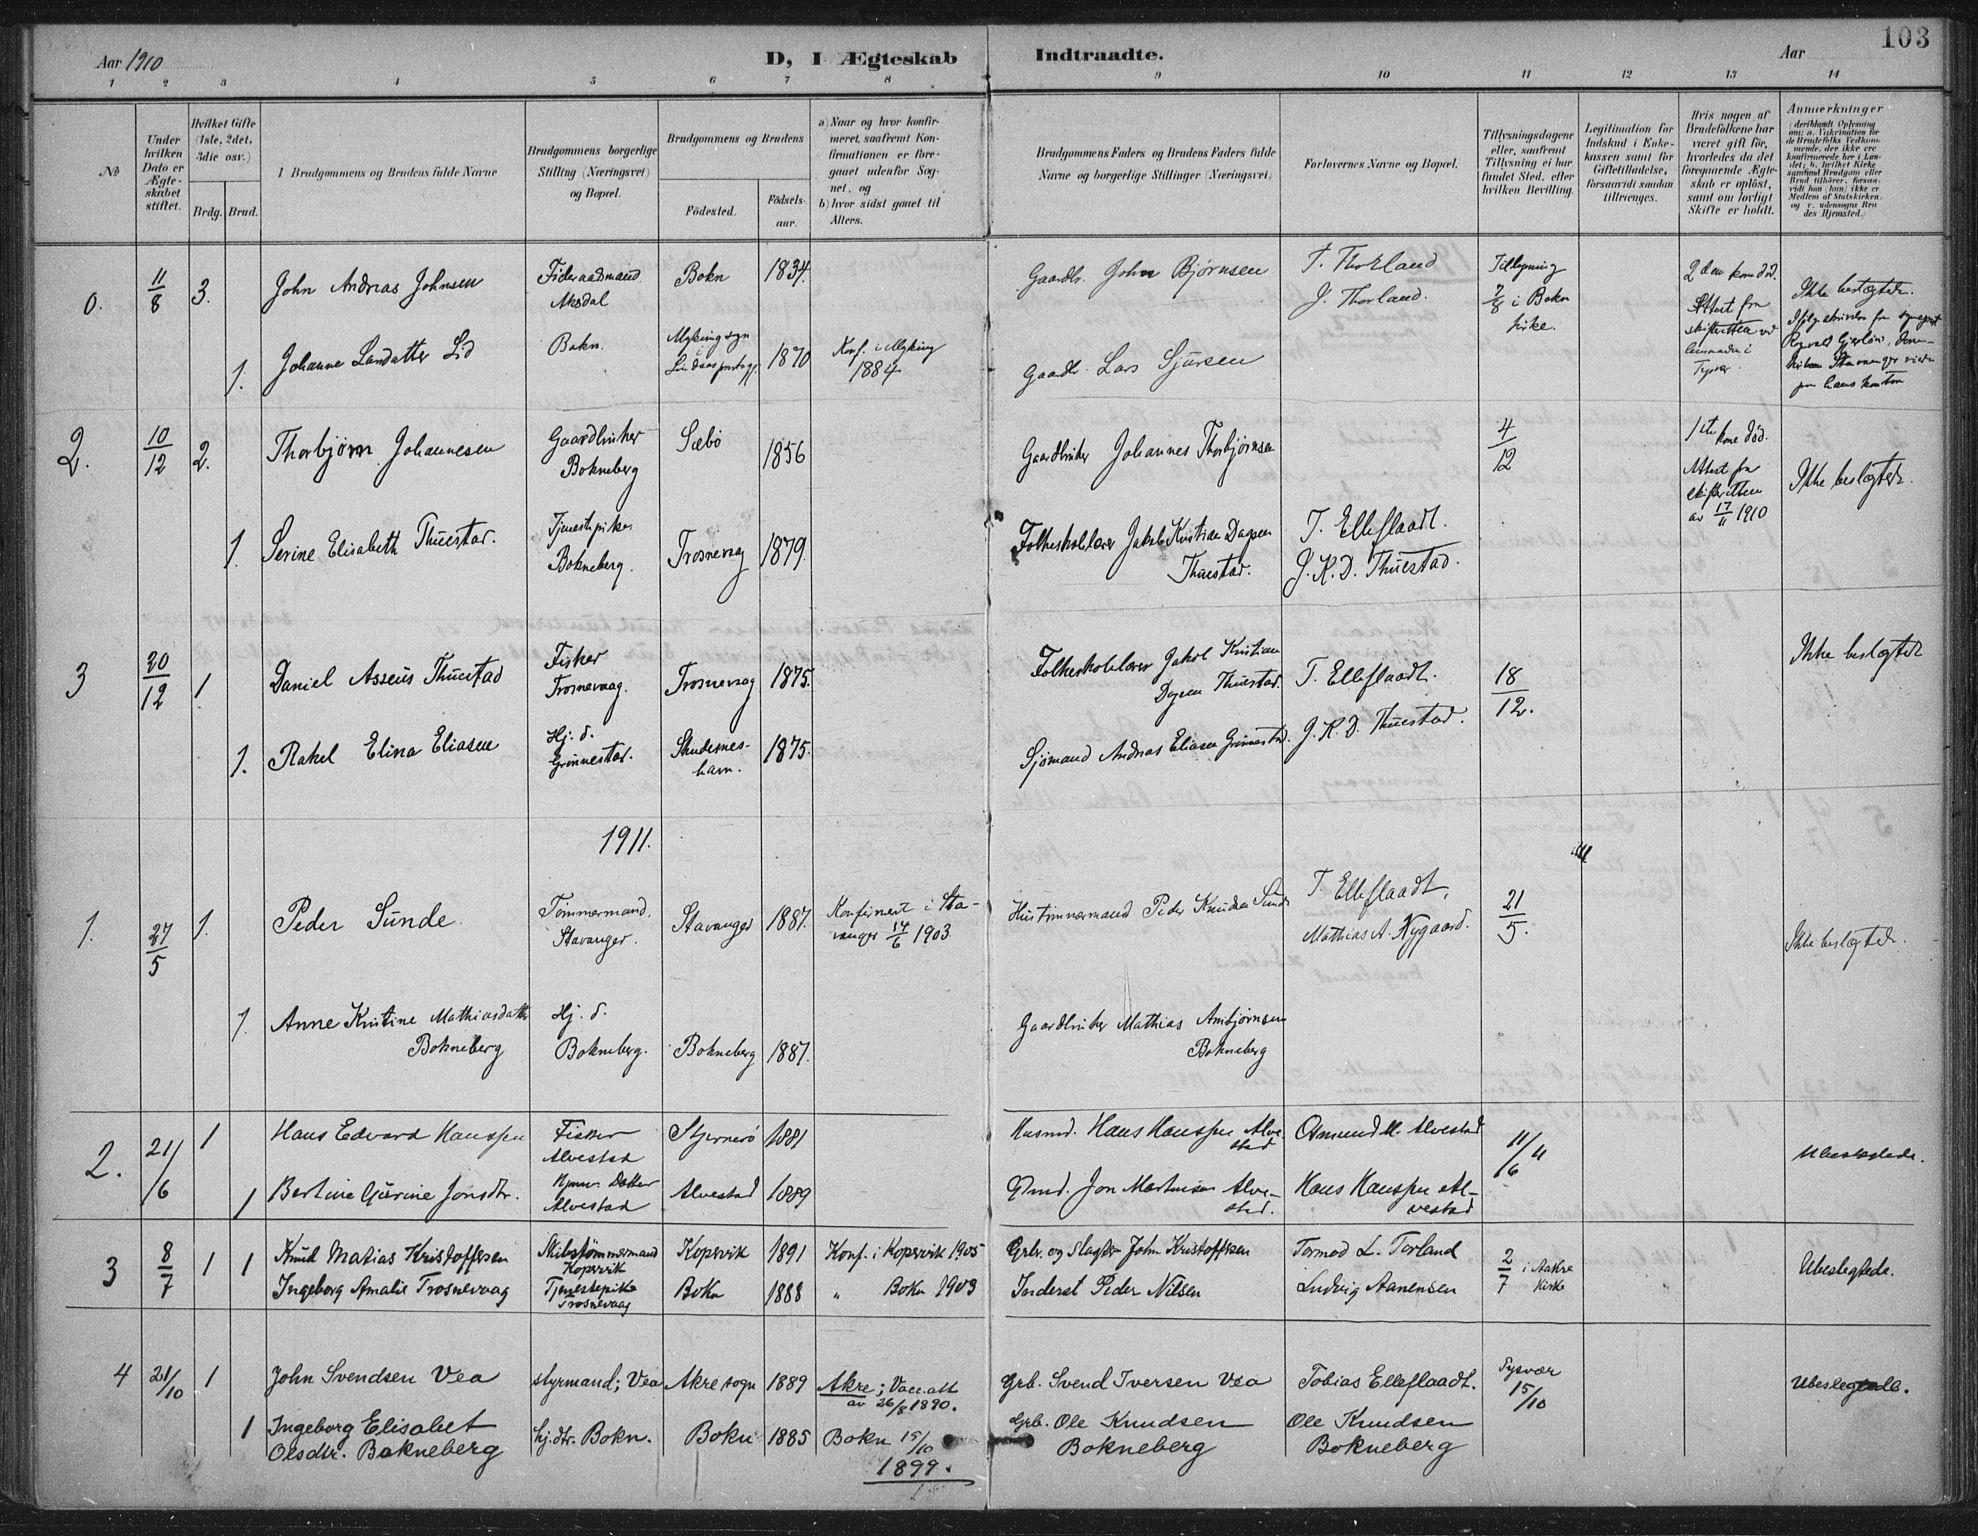 103
Aar 1910
D, I Ægteskab Indtraadte.
Aar
1 2 3 4 5 6 7 8 9 10 11 12 13 14
No
Under
hvilken
Dato er
Ægte-
skabet
stiftet.
Hvilket Gifte
(1ste, 2det,
3die osv.)
Brdg. Brud.
Brudgommens og Brudens fulde Navne
Brudgommens borgerlige
Stilling (Næringsvei)
og Bopæl.
Brudgommens og Brudens
Födested.
Födsels-
aar.
a) Naar og hvor konfir-
meret, saafremt Kon-
firmationen er fore-
gaaet udenfor Sog-
net, og
b) hvor sidst gaaet til
Alters.
Brudgommens Faders og Brudens Faders fulde
Navne og borgerlige Stillinger (Næringsvei)
Forlovernes Navne og Bopæl.
Tillysningsdagene
eller, saafremt
Tillysning ei har
fundet Sted, efter
hvilken Bevilling.
Legitimation for
Indskud i Enke-
kassen samt for
Giftetilladelse,
forsaavidt saadan
tiltrænges.
Hvis nogen af
Brudefolkene har
været gift för,
hvorledes da det
foregaaende Ægte-
skab er oplöst,
samt om lovligt
Skifte er holdt.
Anmærkninger
o. 11/8 3. John Andreas Johnsen Aksdal Bokn 1834. Gaardbr. John Bjørnsen T. Thorland Tillysning 2den kone död. Ikke beslægtede.
J. Thorland. 7/8 i Bokn kirke. Attest fra skifteretten ved lensmanden i Tysvær
1. Johanne Larsdatter Lid Bokn. 1870 Konf. i Myking 1884 Gaardbr. Lars Sjursen
2. 10/12 2. Thorbjørn Johannesen Gaardbruker Bokneberg Sæbö 1856 Gaardbruker Johannes Thorbjørnsen 4/12 1ste kone död. Attest fra skifteretten av 17/11 1910 Ikke beslægtede.
1. Serine Elisabeth Thuestad. Tjenestepike Bokneberg. Trosnevaag 1879. Folkeskolelærer Jakob Kristian Dagsen Thuestad. T. Elleflaadt. J. K. D. Thuestad.
3 20/12 1 Daniel Asseus Thuestad Fisker Trosnevaag. Trosnevaag 1875. Folkeskolelærer Jakob Kristian Dagsen Thuestad. T. Elleflaadt. 18/12. Ikke beslægtede
1. Rakel Elina Eliasen Hj. d. Grinnestad. Skudenes-havn. 1875. Sjömand Andreas Eliasen Grinnestad. J. K. D. Thuestad.
1911.
1. 27/5 1. Peder Sunde. Tömmermand, Stavanger. Stavanger 1887. Konfirmert i Sta-vanger 14/6 1903. Hustömmermand Peder Knudsen Sunde T. Elleflaadt, Mathias A. Nygaard. 21/5. Ikke beslægtede.
1. Anne Kristine Mathiasdatter Bokneberg Hj. d. Bokneberg. Bokneberg 1887. Gaardbruker Mathias Ambjørnsen Bokneberg
2. 21/6 1 Hans Edvard Hanssen Fisker Alvestad Stjernerö 1881 Husmd. Hans Hanssen Alve-stad Osmund M. Alvestad 11/6 11 Ubeslegtede.
1 Bertine Gurine Jonsdtr. Hjemv. Datter Alvestad Alvestad 1889 Gdmd. Jon Martinsen Alve-stad. Hans Hanssen Al-vestad
3 8/7 1 1 Knud Matias Kristoffersen Skibstömmermand Kopervik Kopervik 1891 Konf. i Kopervik 1905 Grbr. og Slagter John Kristoffersen Tormod L. Torland 2/7 i Aakre Kirke Ubeslegtede.
Ingeborg Amalie Trosnevaag Tjenestepike Trosnevaag Bokn 1888 " Bokn 1903 Inderst Peder Nilsen Ludvig Aanensen
4 21/10 1 John Svendsen Vea styrmand; Vea Akre sogn 1889 Akre; Vacc. att av 26/8 1890. Grb. Svend Iversen Vea Tobias Elleflaadt. Tysvær 15/10 Ubeslegtede.
1 Ingeborg Elisabet Olsdtr. Bokneberg hj. dtr. Bokn. Bokn 1885 Bokn 15/10 1899. Grb. Ole Knudsen Bokneberg Ole Knudsen Bokneberg